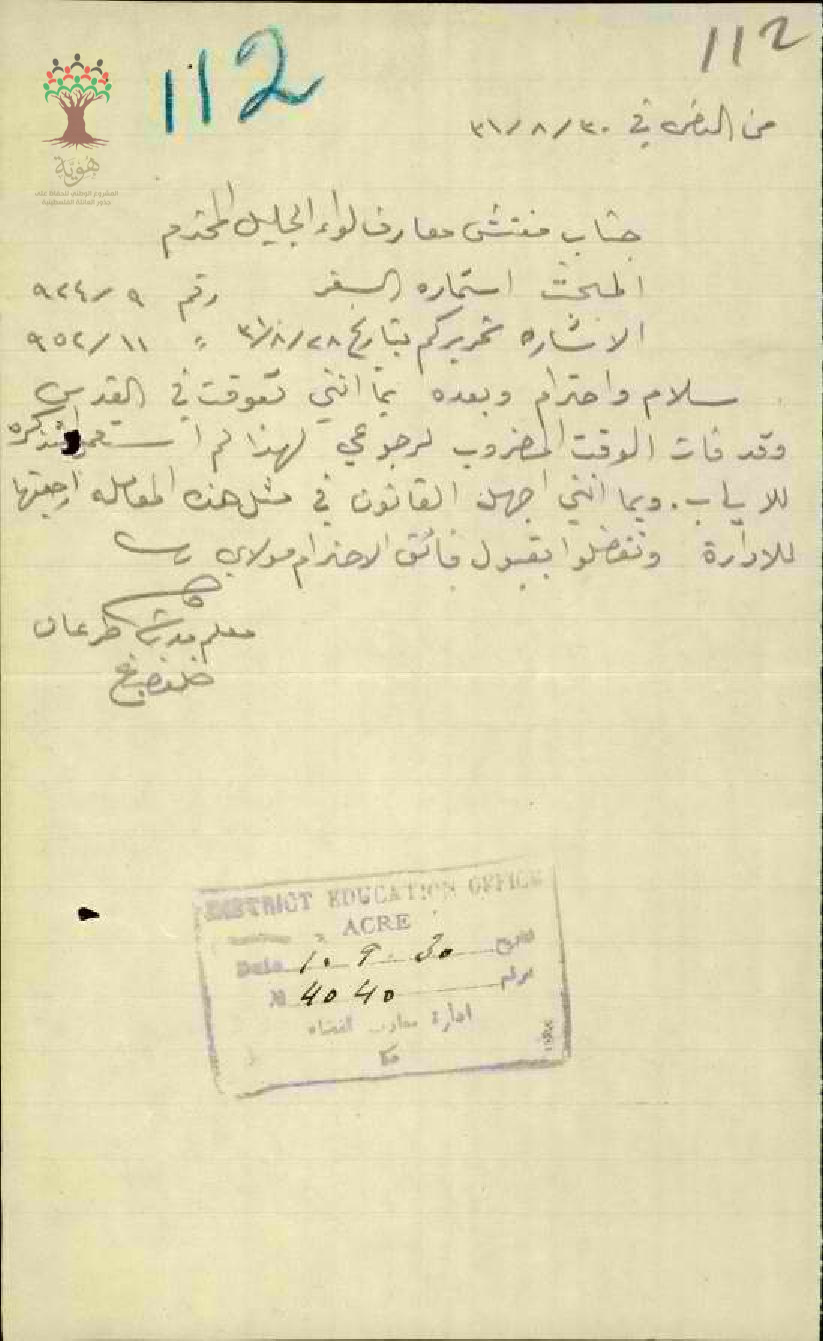 112
112
من في ٣٠/٨/٣١
هُويَّة
المشروع الوطني للحفاظ على
جذور العائلة الفلسطينية
جناب مفتش معارف لواء الجليل المحترم
المبحث استماره السفر رقم ٩/٩٢٤
الاشاره تحريركم بتاريخ ٣١/٨/٢٨ = ١١/٩٥٢
سلام واحترام وبعده بما انني تعوقت في القدس
وقد فات الوقت المضروب لرجوعي لهذا لم التذكره
للاياب. وبما انني اجهل القانون في مثل هذه المعامله ارجعتها
للادارة وتفضلوا بقبول فائق الاحترام مولاي
معلم طرعان
DISTRICT EDUCATION OFFICE
ACRE
Date 10. 9. 30 تاريخ
№ 4040 نمرة
ادارة معارف القضاء
عكا